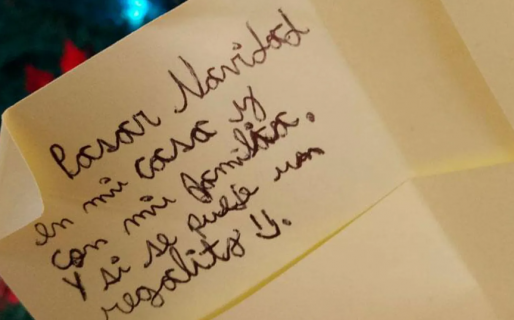 Pasar Navidad
en mi casa y
con mi familia.
Y si se puede un
regalito :).